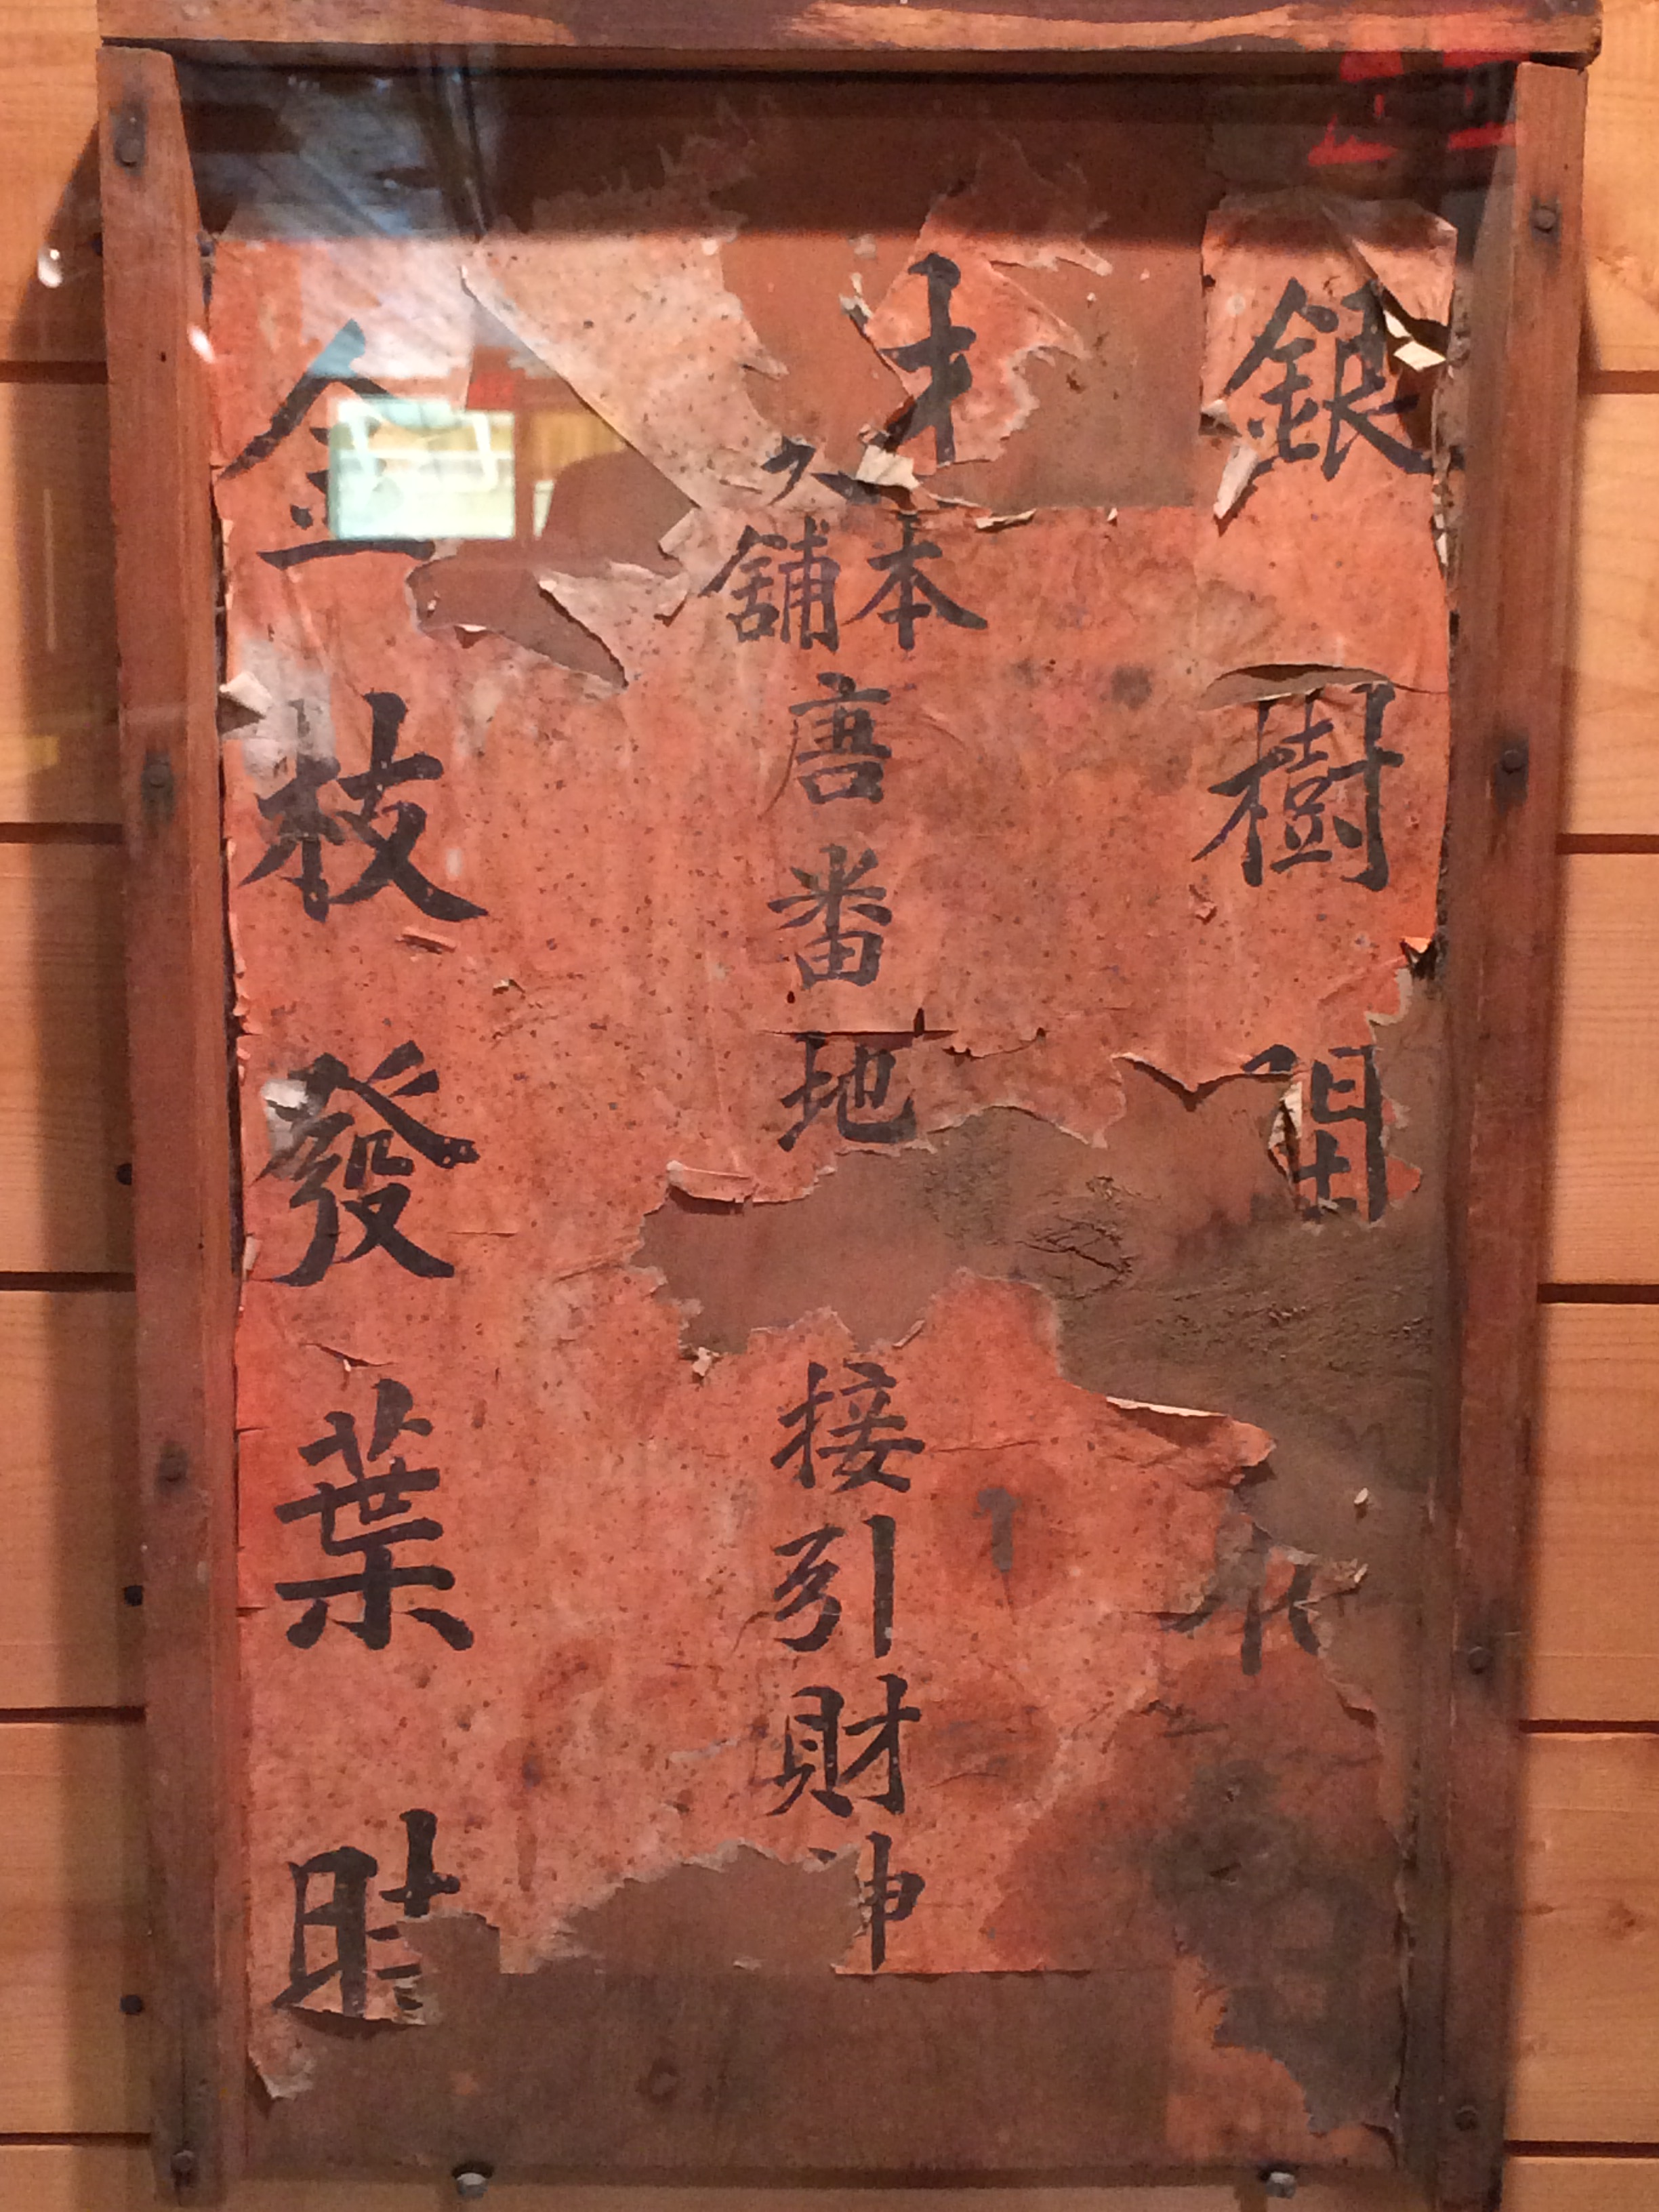 銀樹開花
本舖
唐番地 接引財神
金枝發葉